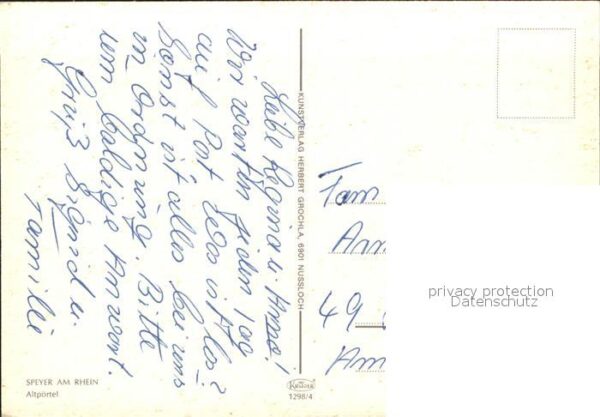 Liebe Regina u. Anna!
Wir warten jeden Tag
auf Post Was ist los?
Sonst ist alles bei uns
in Ordnung. Bitte
um baldige Antwort.
Gruß Sigrid u.
Familie
KUNSTVERLAG HERBERT GROCHLA, 6901 NUSSLOCH
Fam
49
Am
privacy protection
Datenschutz
SPEYER AM RHEIN
Altpörtel
Krüger
1298/4